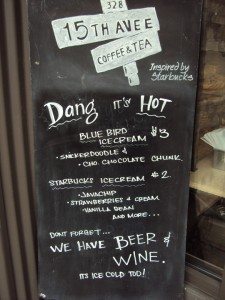 328
15TH AVE E
COFFEE & TEA
Inspired by
Starbucks
Dang it's HOT
BLUE BIRD
ICECREAM $3
• SNICKERDOODLE &
• CHO. CHOCOLATE CHUNK
STARBUCKS ICECREAM $2.
• JAVACHIP
• STRAWBERRIES & CREAM
VANILLA BEAN
AND MORE...
DONT FORGET...
WE HAVE BEER &
WINE.
ITS ICE COLD TOO!